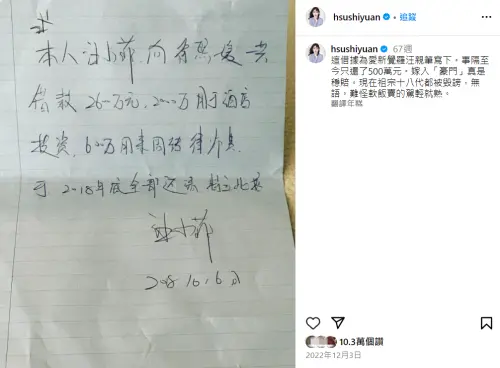 本人汪小菲向徐熙媛共
借款2600万元,2000万用于酒店
投资,600万用来周转
于2018年底全部还清
汪小菲
2018.10.6日
hsushiyuan • 追蹤
hsushiyuan 67週
這借據為愛新覺羅汪親筆寫下。事隔至
今只還了500萬元。嫁入「豪門」真是
穩賠。現在祖宗十八代都被毀謗,無
語。難怪軟飯賣的駕輕就熟。
翻譯年糕
10.3萬個讚
2022年12月3日